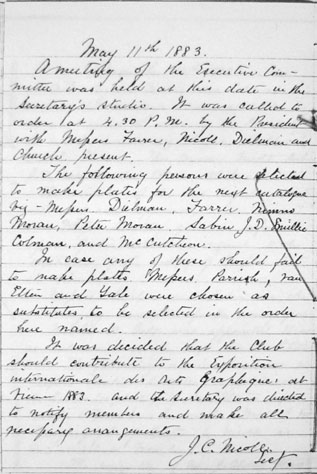 May 11th 1883.
A meeting of the Executive Com-
mittee was held at this date in the
Secretary's studio. It was called to
order at 4.30 P.M. by the President
with Messrs Farrer, Nicoll, Dielman and
Church present.
The following persons were selected
to make plates for the next catalogue
viz - Messrs Dielman, Farrer,
Moran, Peter Moran Sabin, J.D. Smillie
Colman, and McCutcheon.
In case any of these should fail
to make plates Messrs. Parrish, van
Elten and Gale were chosen as
substitutes, to be selected in the order
here named.
It was decided that the Club
should contribute to the Exposition
internationale des Arts Graphiques at
1883. and the Secretary was directed
to notify members and make all
necessary arrangements.
J.C. Nicoll
Sec'y.